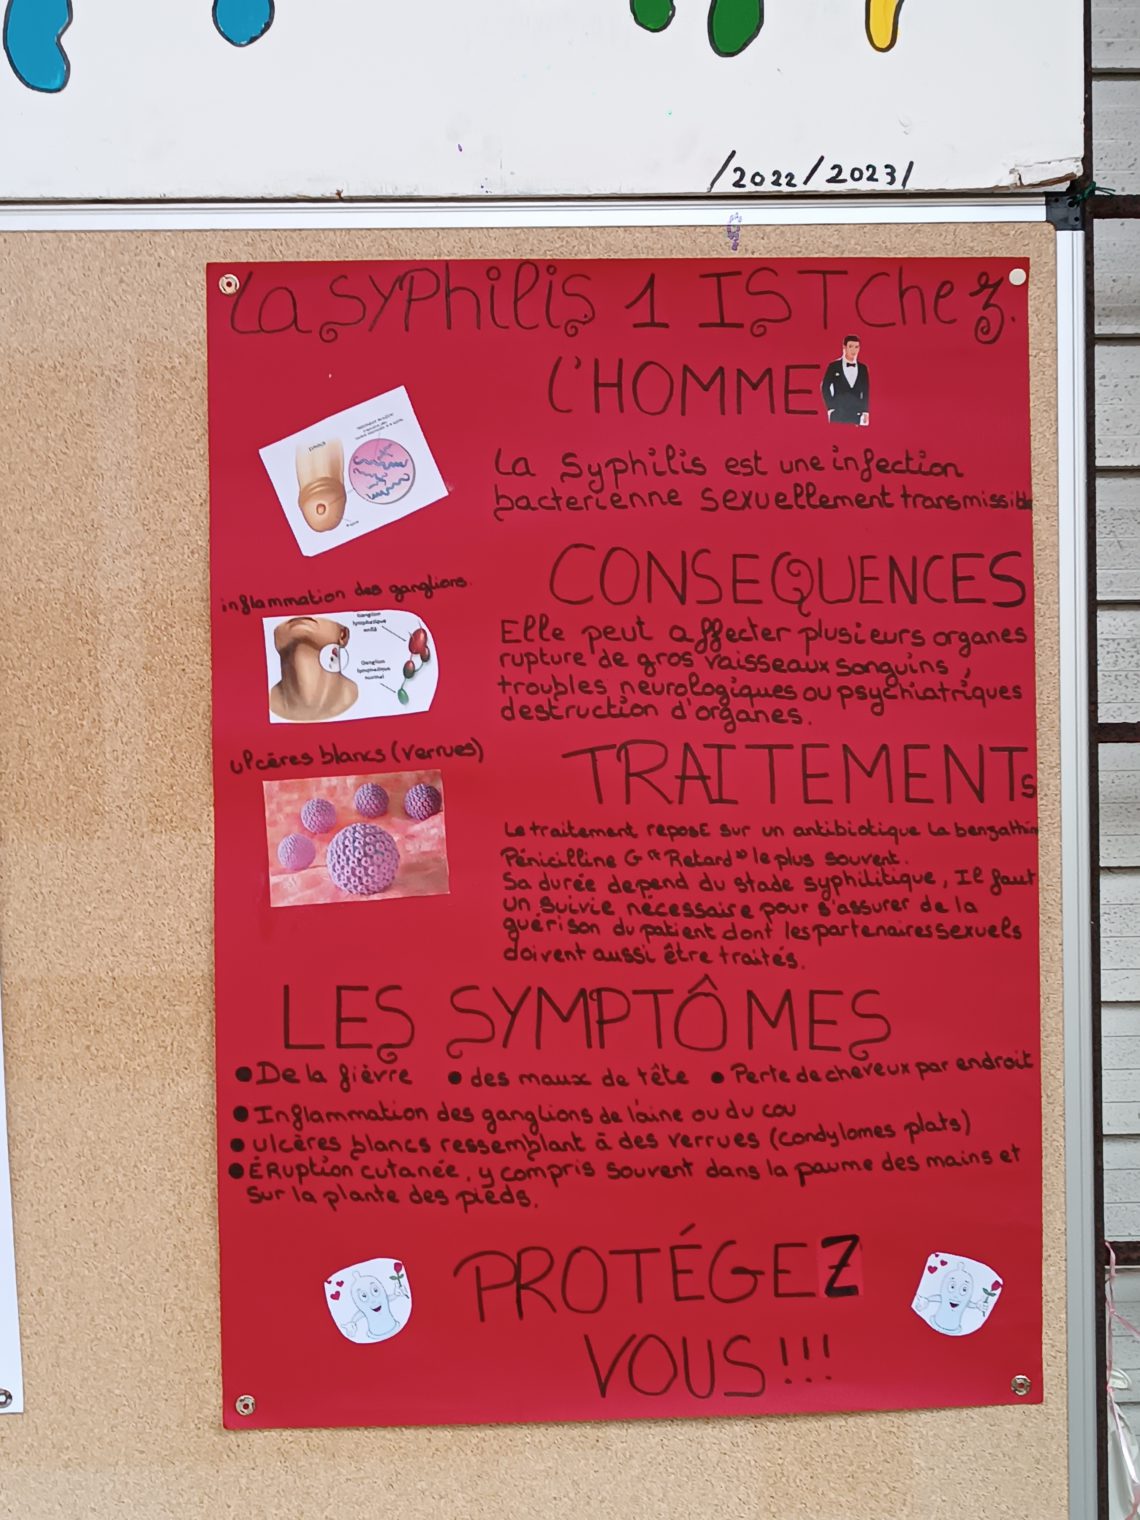 /2022/2023/
La SYPhilis 1 IST Chez
L'HOMME
La Syphilis est une infection
bacterienne sexuellement transmissible
CONSEQUENCES
Elle peut affecter plusieurs organes
rupture de gros vaisseaux sanguins,
troubles neurologiques ou psychiatriques
destruction d'organes.
inflammation des ganglions.
Ganglion
lymphatique
enflé
Ganglion
lymphatique
normal
ulcères blancs (verrues)
TRAITEMENTs
Le traitement reposE sur un antibiotique la benzathin
Pénicilline G "Retard" le plus souvent.
Sa durée depend du stade syphilitique, Il faut
un suivie nécessaire pour s'assurer de la
guérison du patient dont les partenaires sexuels
doivent aussi être traités.
LES SYMPTÔMES
• De la fièvre • des maux de tête • Perte de cheveux par endroit
• Inflammation des ganglions de l'aine ou du cou
• ulcères blancs ressemblant à des verrues (condylomes plats)
• ÉRuption cutanée, y compris souvent dans la paume des mains et
sur la plante des pieds.
PROTÉGEZ
VOUS!!!